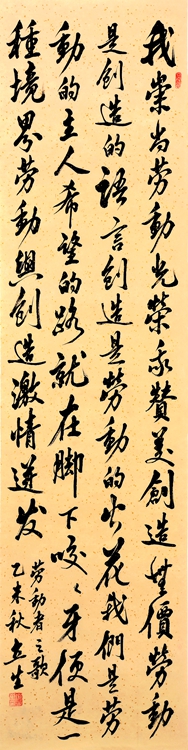 我崇尚劳動光榮永赞美創造無價劳動
是創造的語言創造是劳動的火花我們是劳
動的主人希望的路就在脚下咬々牙便是一
種境界劳動與創造激情迸发
劳動者之歌
乙未秋立生